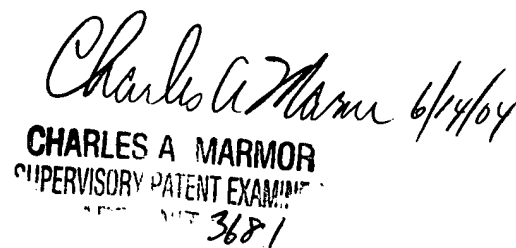 Charles A Marmor 6/14/04
CHARLES A MARMOR
SUPERVISORY PATENT EXAMINER
3681